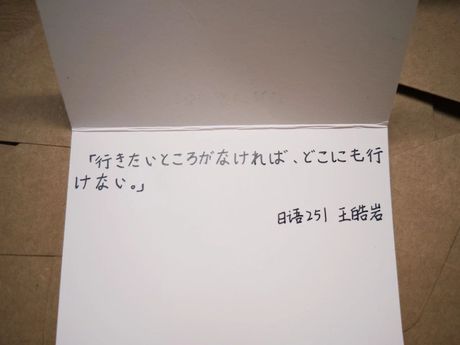 「行きたいところがなければ、どこにも行
けない。」
日语251 王皓岩